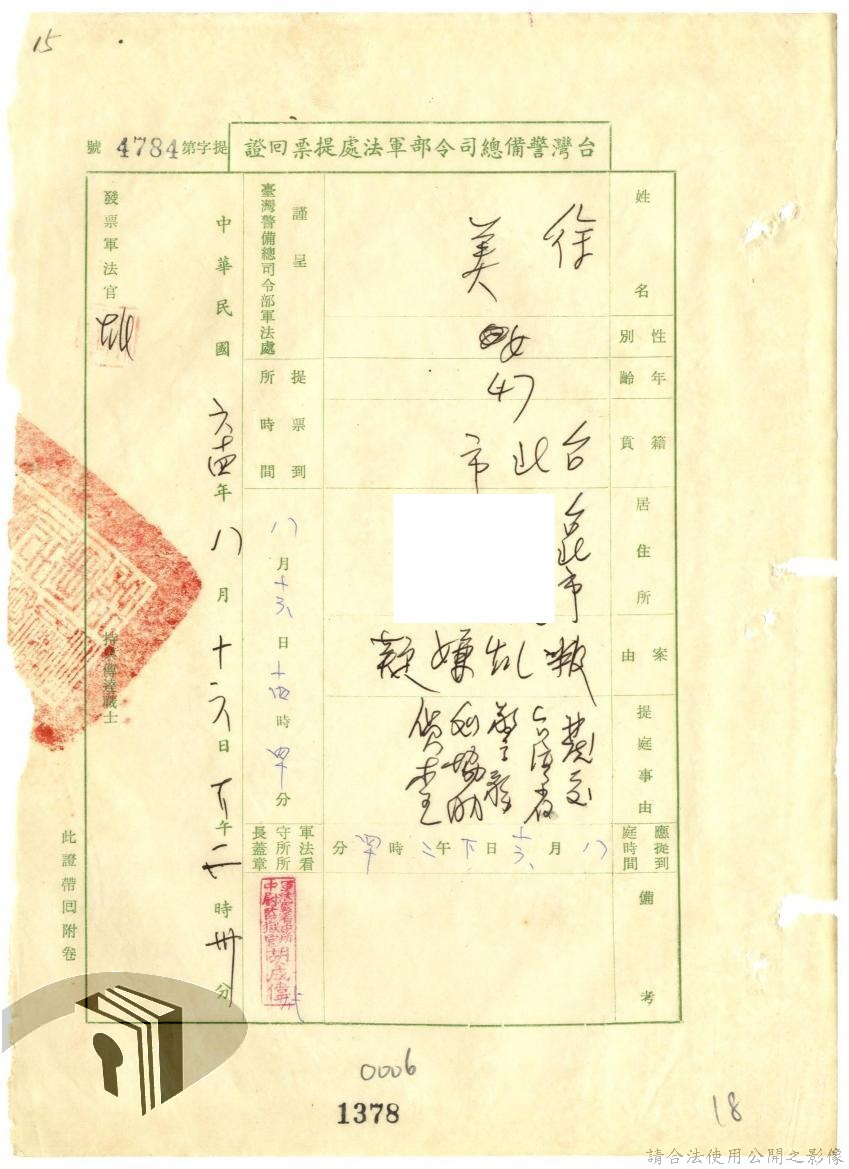 15
台灣警備總司令部軍法處提票回證
提字第4784號
姓名
徐
美
性別
女
年齡
47
籍貫
台北市
居住所
台北市
案由
叛亂嫌疑
提庭事由
應提到庭時間
八月十六日下午二時四十分
備考
謹呈
臺灣警備總司令部軍法處
提票到所時間
八月十六日十四時四十分
軍法看守所所長蓋章
中華民國六十四年八月十六日下午二時卅分
發票軍法官
持票傳達戰士
此證帶回附卷
0006
1378
18
請合法使用公開之影像